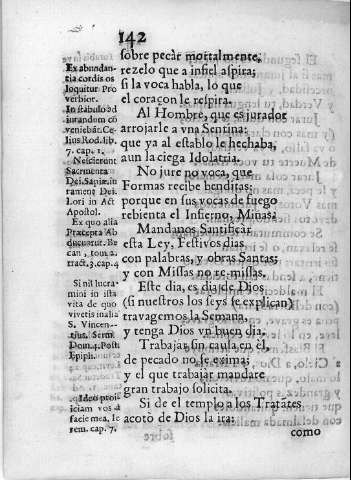 142
sobre pecar mortalmente;
rezelo que a infiel aspira;
si la voca habla, lo que
el coraçon le respira.
Al Hombre, que es jurados
arrojarle a vna Sentina:
que ya al establo le hechaba,
aun la ciega Idolatria.
No jure no voca, que
Formas recibe benditas:
porque en sus vocas de fuego
rebienta el Infierno, Minas.
Mandanos Santificar
esta Ley, Festivos dias
con palabras, y obras Santas;
y con Missas no re-missas.
Este dia, es dia de Dios
(si nuestros los seys se explican)
travagemos la Semana,
y tenga Dios vn buen dia.
Trabajar sin causa en èl,
de pecado no se exima;
y el que trabajar mandare
gran trabajo solicita.
Si de el templo a los Tratátes
acotò de Dios la ira:
como
Ex abundan-
tia cordis os
loquitur Pro
verbior.
In stabulo ad
iurandum có
veniebát. Ce-
lius Rod. lib.
7. cap. 1.
Nescierunt
Sacramenta
Dei. Sapiæ. iu
ramenẽ Dei.
Lori in Act
Apostol.
Ex quo alia
Præcepta Ab
ducuntur. Be
can, tom. 2.
tract. 3. cap. 4
Si nil lucra-
mini in ista
vita de quo
vivetis in alia
S. Vincen-
tius. Serm.
Dom. 4. Post
Epiph.
Ideo proii-
ciam vos a
facie mea. Ie
rem. cap. 7.